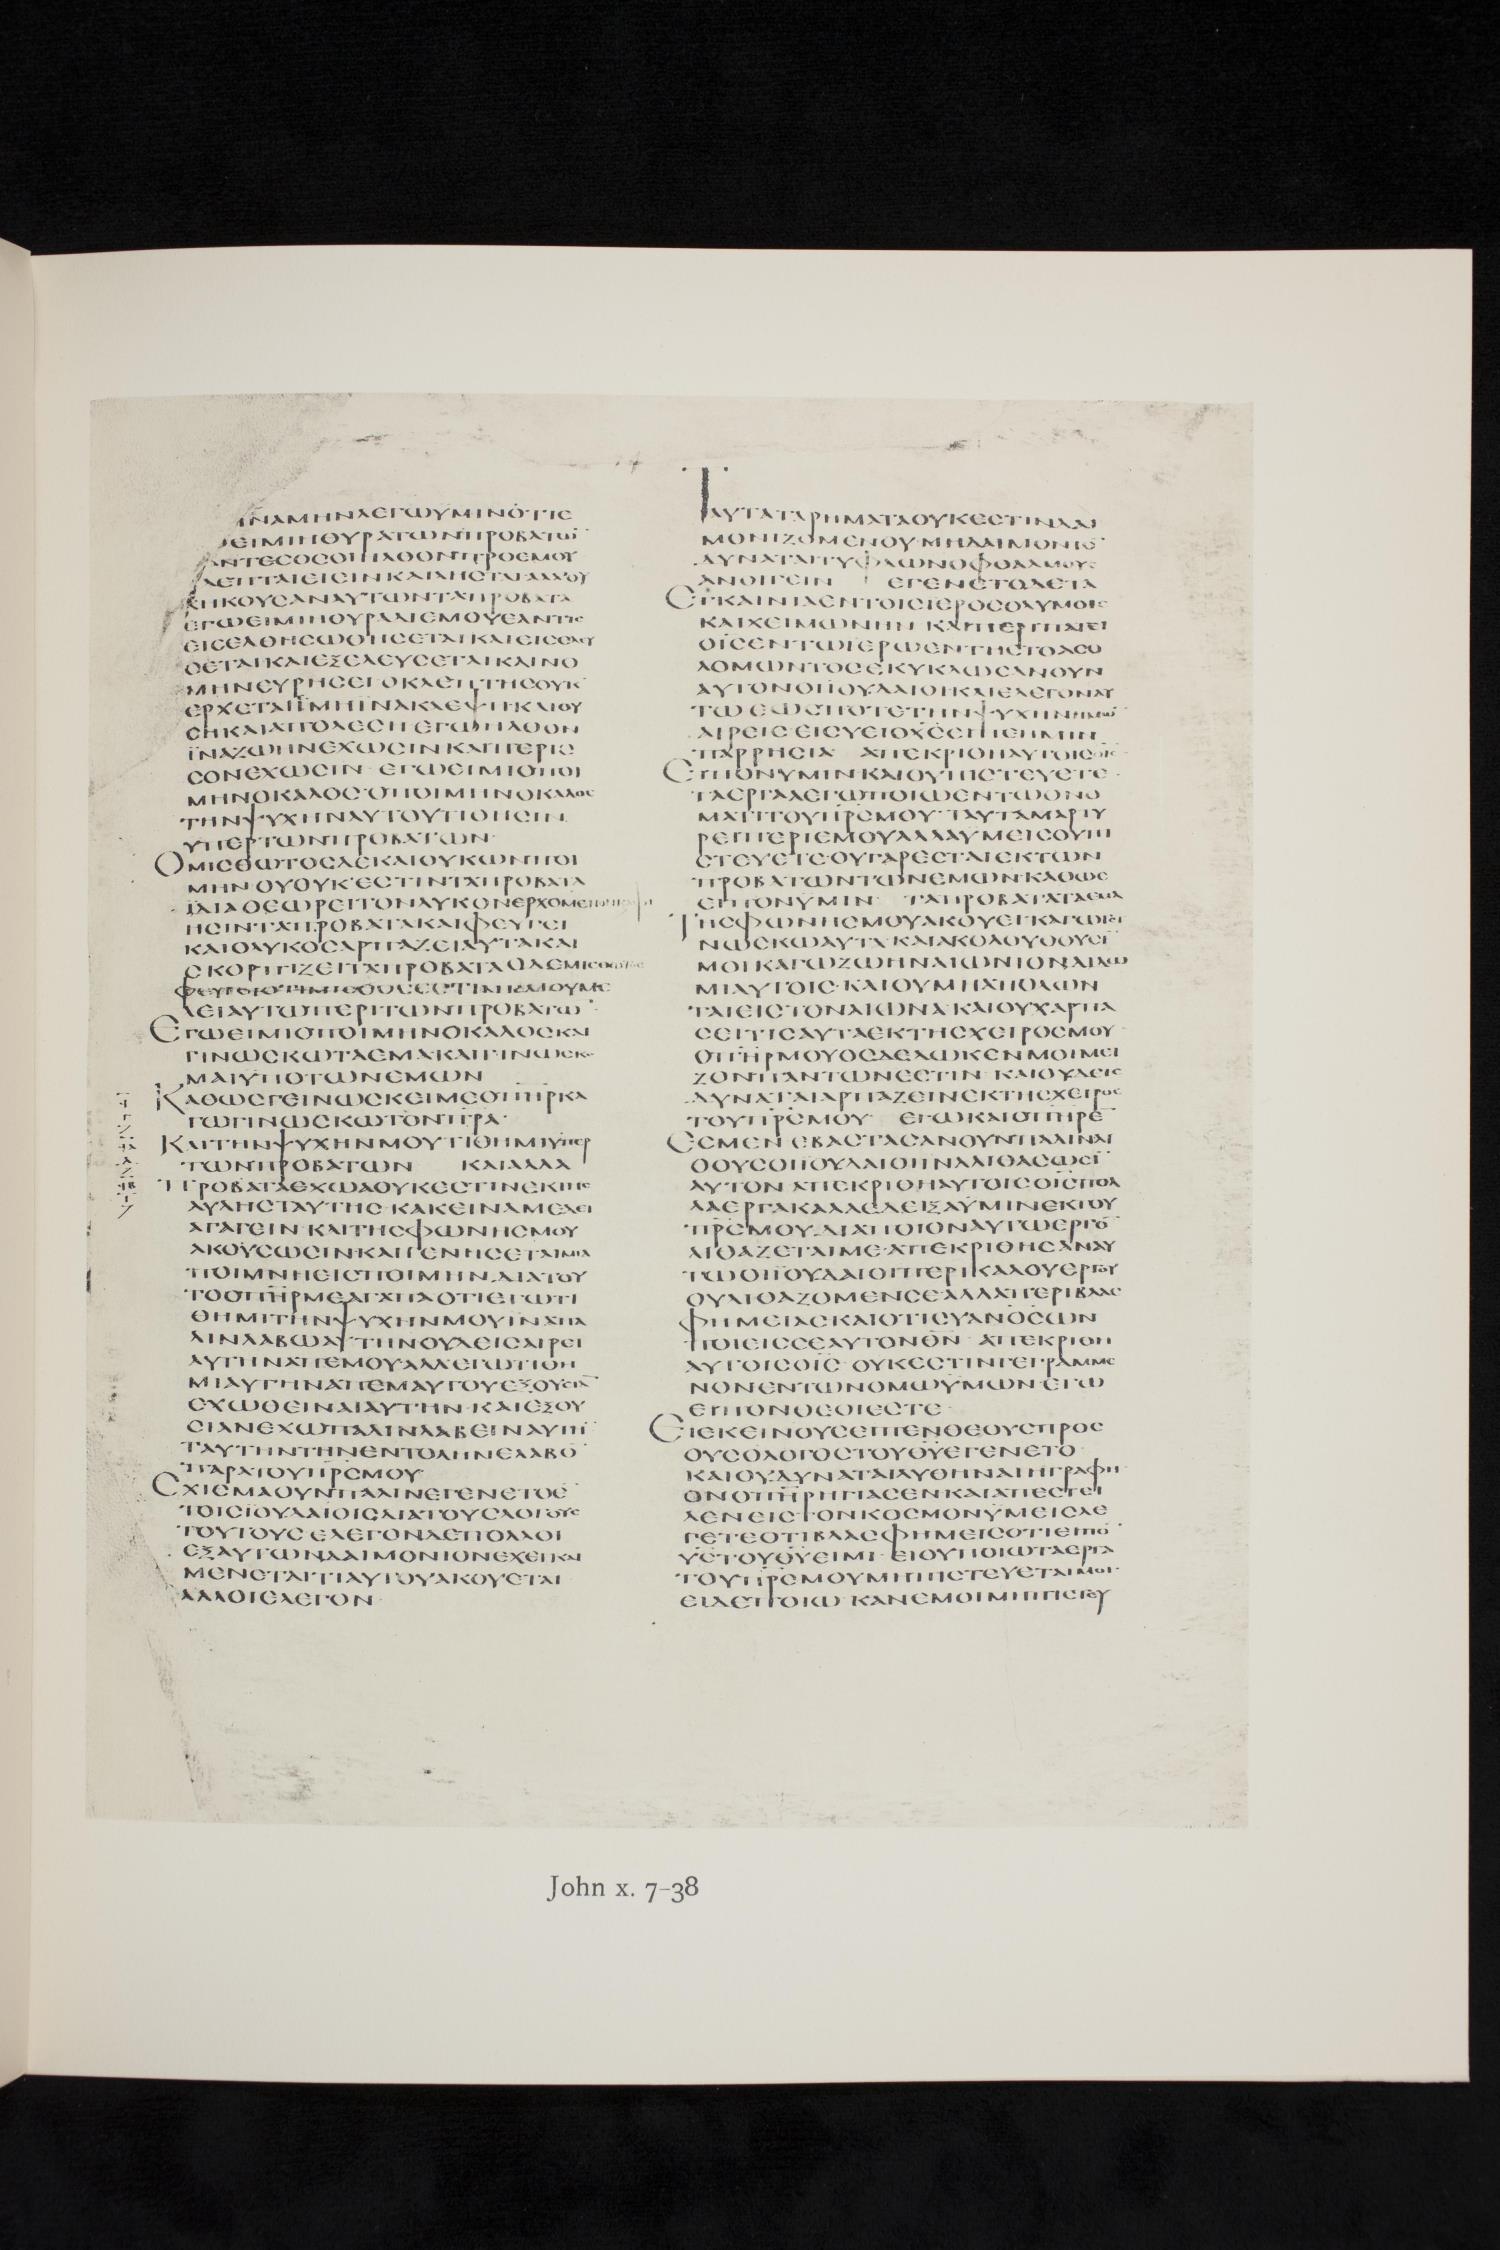 ΑΜΗΝΛΕΓΩΥΜΙΝΟΤΙΕ
ΕΙΜΙΗΘΥΡΑΤΩΝΠΡΟΒΑΤΩ̅
ΝΤΕΣΟΣΟΙΗΛΘΟΝΠΡΟΕΜΟΥ
ΛΕΠΤΑΙΕΙΣΙΝΚΑΙΛΗΣΤΑΙΑΛΛΟΥ
ΚΗΚΟΥΣΑΝΑΥΤΩΝΤΑΠΡΟΒΑΤΑ
ΕΓΩΕΙΜΙΗΘΥΡΑΔΙΕΜΟΥΕΑΝΤΙΣ
ΕΙΣΕΛΘΗΣΩΘΗΣΕΤΑΙΚΑΙΕΙΣΕΛΕΥ
ΘΕΤΑΙΚΑΙΕΞΕΛΕΥΣΕΤΑΙΚΑΙΝΟ
ΜΗΝΕΥΡΗΣΕΙΟΚΛΕΠΤΗΣΟΥΚ
ΕΡΧΕΤΑΙΕΙΜΗΙΝΑΚΛΕΨΗΚΑΙΘΥ
ΣΗΚΑΙΑΠΟΛΕΣΗΕΓΩΗΛΘΟΝ
ΪΝΑΖΩΗΝΕΧΩΣΕΙΝΚΑΙΠΕΡΙΣ
ΣΟΝΕΧΩΣΕΙΝ ΕΓΩΕΙΜΙΟΠΟΙ
ΜΗΝΟΚΑΛΟΣΟΠΟΙΜΗΝΟΚΑΛΟΣ
ΤΗΝΨΥΧΗΝΑΥΤΟΥΤΙΘΗΣΙΝ
ΥΠΕΡΤΩΝΠΡΟΒΑΤΩΝ
ΟΜΙΣΘΩΤΟΣΔΕΚΑΙΟΥΚΩΝΠΟΙ
ΜΗΝΟΥΟΥΚΕΣΤΙΝΤΑΠΡΟΒΑΤΑ
ΪΔΙΑΘΕΩΡΕΙΤΟΝΛΥΚΟΝΕΡΧΟΜΕΝΟΝ
ΗΣΙΝΤΑΠΡΟΒΑΤΑΚΑΙΦΕΥΓΕΙ
ΚΑΙΟΛΥΚΟΣΑΡΠΑΖΕΙΑΥΤΑΚΑΙ
ΣΚΟΡΠΙΖΕΙΤΑΠΡΟΒΑΤΑΟΔΕΜΙΣΘΩΤΟΣ
ΦΕΥΓΕΙΟΤΙΜΙΣΘΩΤΟΣΕΣΤΙΝΚΑΙΟΥΜΕ
ΛΕΙΑΥΤΩΠΕΡΙΤΩΝΠΡΟΒΑΤΩ̅
ΕΓΩΕΙΜΙΟΠΟΙΜΗΝΟΚΑΛΟΣΚΑΙ
ΓΙΝΩΣΚΩΤΑΕΜΑΚΑΙΓΙΝΩΣΚΟ
ΜΑΙΫΠΟΤΩΝΕΜΩΝ
ΚΑΘΩΣΓΕΙΝΩΣΚΕΙΜΕΟΠΗΡΚΑ
ΓΩΓΙΝΩΣΚΩΤΟΝΠΡΑ
ΚΑΙΤΗΝΨΥΧΗΝΜΟΥΤΙΘΗΜΙΥΠΕΡ
ΤΩΝΠΡΟΒΑΤΩΝ ΚΑΙΑΛΛΑ
ΠΡΟΒΑΤΑΕΧΩΑΟΥΚΕΣΤΙΝΕΚΤΗΣ
ΑΥΛΗΣΤΑΥΤΗΣΚΑΚΕΙΝΑΜΕΔΕΙ
ΑΓΑΓΕΙΝΚΑΙΤΗΣΦΩΝΗΣΜΟΥ
ΑΚΟΥΣΩΣΕΙΝΚΑΙΓΕΝΗΣΕΤΑΙΜΙΑ
ΠΟΙΜΝΗΕΙΣΠΟΙΜΗΝΔΙΑΤΟΥ
ΤΟΟΠΗΡΜΕΑΓΑΠΑΟΤΙΕΓΩΤΙ
ΘΗΜΙΤΗΝΨΥΧΗΝΜΟΥΙΝΑΠΑ
ΛΙΝΛΑΒΩΑΥΤΗΝΟΥΔΕΙΣΑΙΡΕΙ
ΑΥΤΗΝΑΠΕΜΟΥΑΛΛΕΓΩΤΙΘΗ
ΜΙΑΥΤΗΝΑΠΕΜΑΥΤΟΥΕΞΟΥΣΙΑ̅
ΕΧΩΘΕΙΝΑΙΑΥΤΗΝΚΑΙΕΞΟΥ
ΣΙΑΝΕΧΩΠΑΛΙΝΛΑΒΕΙΝΑΥΤΗ̅
ΤΑΥΤΗΝΤΗΝΕΝΤΟΛΗΝΕΛΑΒΟ̅
ΠΑΡΑΤΟΥΠΡΣΜΟΥ
ΣΧΙΣΜΑΟΥΝΠΑΛΙΝΕΓΕΝΕΤΟΕ̅
ΤΟΙΣΪΟΥΔΑΙΟΙΣΔΙΑΤΟΥΣΛΟΓΟΥΣ
ΤΟΥΤΟΥΣΕΛΕΓΟΝΔΕΠΟΛΛΟΙ
ΕΞΑΥΤΩΝΔΑΙΜΟΝΙΟΝΕΧΕΙΚΑΙ
ΜΕΝΕΤΑΙΤΙΑΥΤΟΥΑΚΟΥΕΤΑΙ
ΑΛΛΟΙΕΛΕΓΟΝ
ΤΑΥΤΑΤΑΡΗΜΑΤΑΟΥΚΕΣΤΙΝΔΑΙ
ΜΟΝΙΖΟΜΕΝΟΥΜΗΔΑΙΜΟΝΙΟ̅
ΔΥΝΑΤΑΙΤΥΦΛΩΝΟΦΘΑΛΜΟΥΣ
ΑΝΟΙΓΕΙΝ ΕΓΕΝΕΤΟΔΕΤΑ
ΕΓΚΑΙΝΙΑΕΝΤΟΙΣΙΕΡΟΣΟΛΥΜΟΙΣ
ΚΑΙΧΕΙΜΩΝΗΝΚΑΙΠΕΡΙΠΑΤΕΙ
ΟΙΣΕΝΤΩΙΕΡΩΕΝΤΗΣΤΟΑΣΟ
ΛΟΜΩΝΤΟΣΕΚΥΚΛΩΣΑΝΟΥΝ
ΑΥΤΟΝΟΙΪΟΥΔΑΙΟΙΚΑΙΕΛΕΓΟΝΑΥ
ΤΩΕΩΣΠΟΤΕΤΗΝΨΥΧΗΝΗΜΩ̅
ΑΙΡΕΙΣΕΙΣΥΕΙΟΧΣΕΙΠΕΗΜΙΝ
ΠΑΡΡΗΣΙΑ ΑΠΕΚΡΙΘΗΑΥΤΟΙΣΟΙΣ
ΕΙΠΟΝΥΜΙΝΚΑΙΟΥΠΙΣΤΕΥΕΤΕ
ΤΑΕΡΓΑΑΕΓΩΠΟΙΩΕΝΤΩΟΝΟ
ΜΑΤΙΤΟΥΠΡΣΜΟΥΤΑΥΤΑΜΑΡΤΥ
ΡΕΙΠΕΡΙΕΜΟΥΑΛΛΑΥΜΕΙΣΟΥΠΙ
ΣΤΕΥΕΤΕΟΥΓΑΡΕΣΤΑΙΕΚΤΩΝ
ΠΡΟΒΑΤΩΝΤΩΝΕΜΩΝΚΑΘΩΣ
ΕΙΠΟΝΥΜΙΝ ΤΑΠΡΟΒΑΤΑΤΑΕΜΑ
ΤΗΣΦΩΝΗΣΜΟΥΑΚΟΥΕΙΚΑΓΩΓΕΙ
ΝΩΣΚΩΑΥΤΑΚΑΙΑΚΟΛΟΥΘΟΥΣΙ̅
ΜΟΙΚΑΓΩΖΩΗΝΑΙΩΝΙΟΝΔΙΔΩ
ΜΙΑΥΤΟΙΣΚΑΙΟΥΜΗΑΠΟΛΩΝ
ΤΑΙΕΙΣΤΟΝΑΙΩΝΑΚΑΙΟΥΧΑΡΠΑ
ΣΕΙΤΙΣΑΥΤΑΕΚΤΗΣΧΕΙΡΟΣΜΟΥ
ΟΠΗΡΜΟΥΟΣΔΕΔΩΚΕΝΜΟΙΜΕΙ
ΖΟΝΠΑΝΤΩΝΕΣΤΙΝΚΑΙΟΥΔΕΙΣ
ΔΥΝΑΤΑΙΑΡΠΑΖΕΙΝΕΚΤΗΣΧΕΙΡΟΣ
ΤΟΥΠΡΣΜΟΥ ΕΓΩΚΑΙΟΠΗΡΕ
ΣΕΣΜΕΝΕΒΑΣΤΑΣΑΝΟΥΝΠΑΛΙΝΛΙ
ΘΟΥΣΟΙΪΟΥΔΑΙΟΙΙΝΑΛΙΘΑΣΩΣΙ̅
ΑΥΤΟΝΑΠΕΚΡΙΘΗΑΥΤΟΙΣΟΙΣΠΟΛ
ΛΑΕΡΓΑΚΑΛΑΕΔΕΙΞΑΥΜΙΝΕΚΤΟΥ
ΠΡΣΜΟΥΔΙΑΠΟΙΟΝΑΥΤΩΕΡΓΟ̅
ΛΙΘΑΖΕΤΑΙΜΕΑΠΕΚΡΙΘΗΣΑΝΑΥ
ΤΩΟΙΪΟΥΔΑΙΟΙΠΕΡΙΚΑΛΟΥΕΡΓΟΥ
ΟΥΛΙΘΑΖΟΜΕΝΣΕΑΛΛΑΠΕΡΙΒΛΑΣ
ΦΗΜΕΙΑΣΚΑΙΟΤΙΣΥΑΝΟΣΩΝ
ΠΟΙΕΙΣΣΕΑΥΤΟΝΘΝ ΑΠΕΚΡΙΘΗ
ΑΥΤΟΙΣΟΙΣ ΟΥΚΕΣΤΙΝΓΕΓΡΑΜΜΕ
ΝΟΝΕΝΤΩΝΟΜΩΫΜΩΝΕΓΩ
ΕΙΠΟΝΘΕΟΙΕΣΤΕ
ΕΙΕΚΕΙΝΟΥΣΕΙΠΕΝΘΕΟΥΣΠΡΟΣ
ΟΥΣΟΛΟΓΟΣΤΟΥΘΥΕΓΕΝΕΤΟ
ΚΑΙΟΥΔΥΝΑΤΑΙΛΥΘΗΝΑΙΗΓΡΑΦΗ
ΟΝΟΠΗΡΗΓΙΑΣΕΝΚΑΙΑΠΕΣΤΕΙ
ΛΕΝΕΙΣΤΟΝΚΟΣΜΟΝΥΜΕΙΣΛΕ
ΓΕΤΕΟΤΙΒΛΑΣΦΗΜΕΙΣΟΤΙΕΙΠΟ̅
ΥΣΤΟΥΘΥΕΙΜΙ ΕΙΟΥΠΟΙΩΤΑΕΡΓΑ
ΤΟΥΠΡΣΜΟΥΜΗΠΙΣΤΕΥΕΤΑΙΜΟΙ
ΕΙΔΕΠΟΙΩΚΑΝΕΜΟΙΜΗΠΙΣΤΕΥ
John x. 7–38